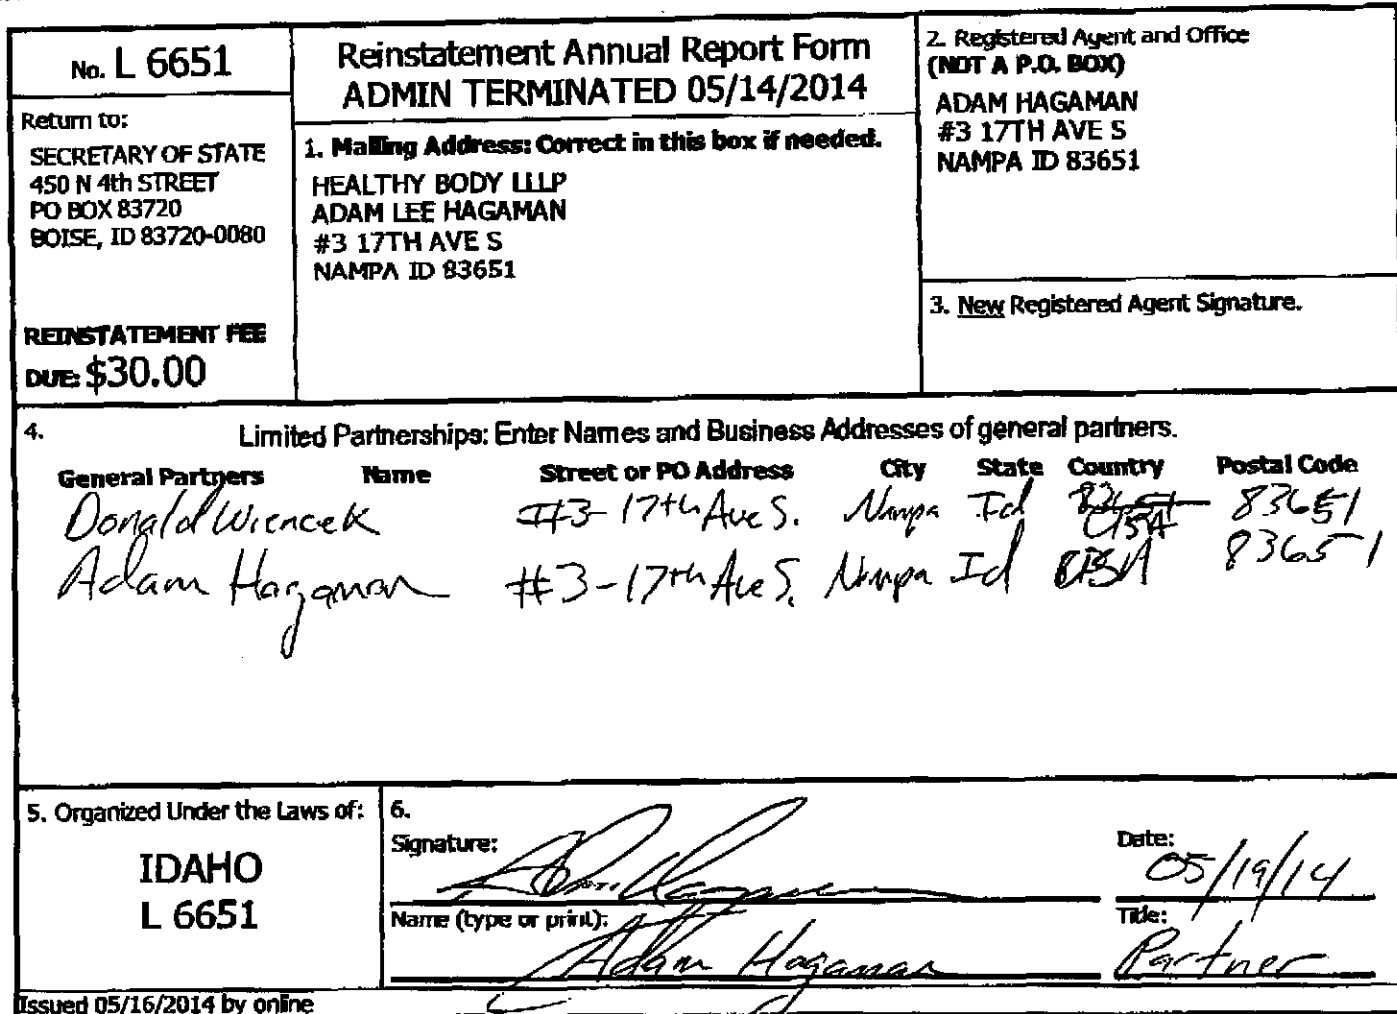 No. L 6651
Return to:
SECRETARY OF STATE
450 N 4th STREET
PO BOX 83720
BOISE, ID 83720-0080
REINSTATEMENT FEE
DUE: $30.00
Reinstatement Annual Report Form
ADMIN TERMINATED 05/14/2014
1. Mailing Address: Correct in this box if needed.
HEALTHY BODY LLLP
ADAM LEE HAGAMAN
#3 17TH AVE S
NAMPA ID 83651
2. Registered Agent and Office
(NOT A P.O. BOX)
ADAM HAGAMAN
#3 17TH AVE S
NAMPA ID 83651
3. New Registered Agent Signature.
4. Limited Partnerships: Enter Names and Business Addresses of general partners.
General Partners Name Street or PO Address City State Country Postal Code
Donald Wiencek #3-17th Ave S. Nampa Id 83651 USA 83651
Adam Hagaman #3-17th Ave S. Nampa Id USA 83651
5. Organized Under the Laws of:
IDAHO
L 6651
6.
Signature:
Date: 05/19/14
Name (type or print): Adam Hagaman
Title: Partner
Issued 05/16/2014 by online